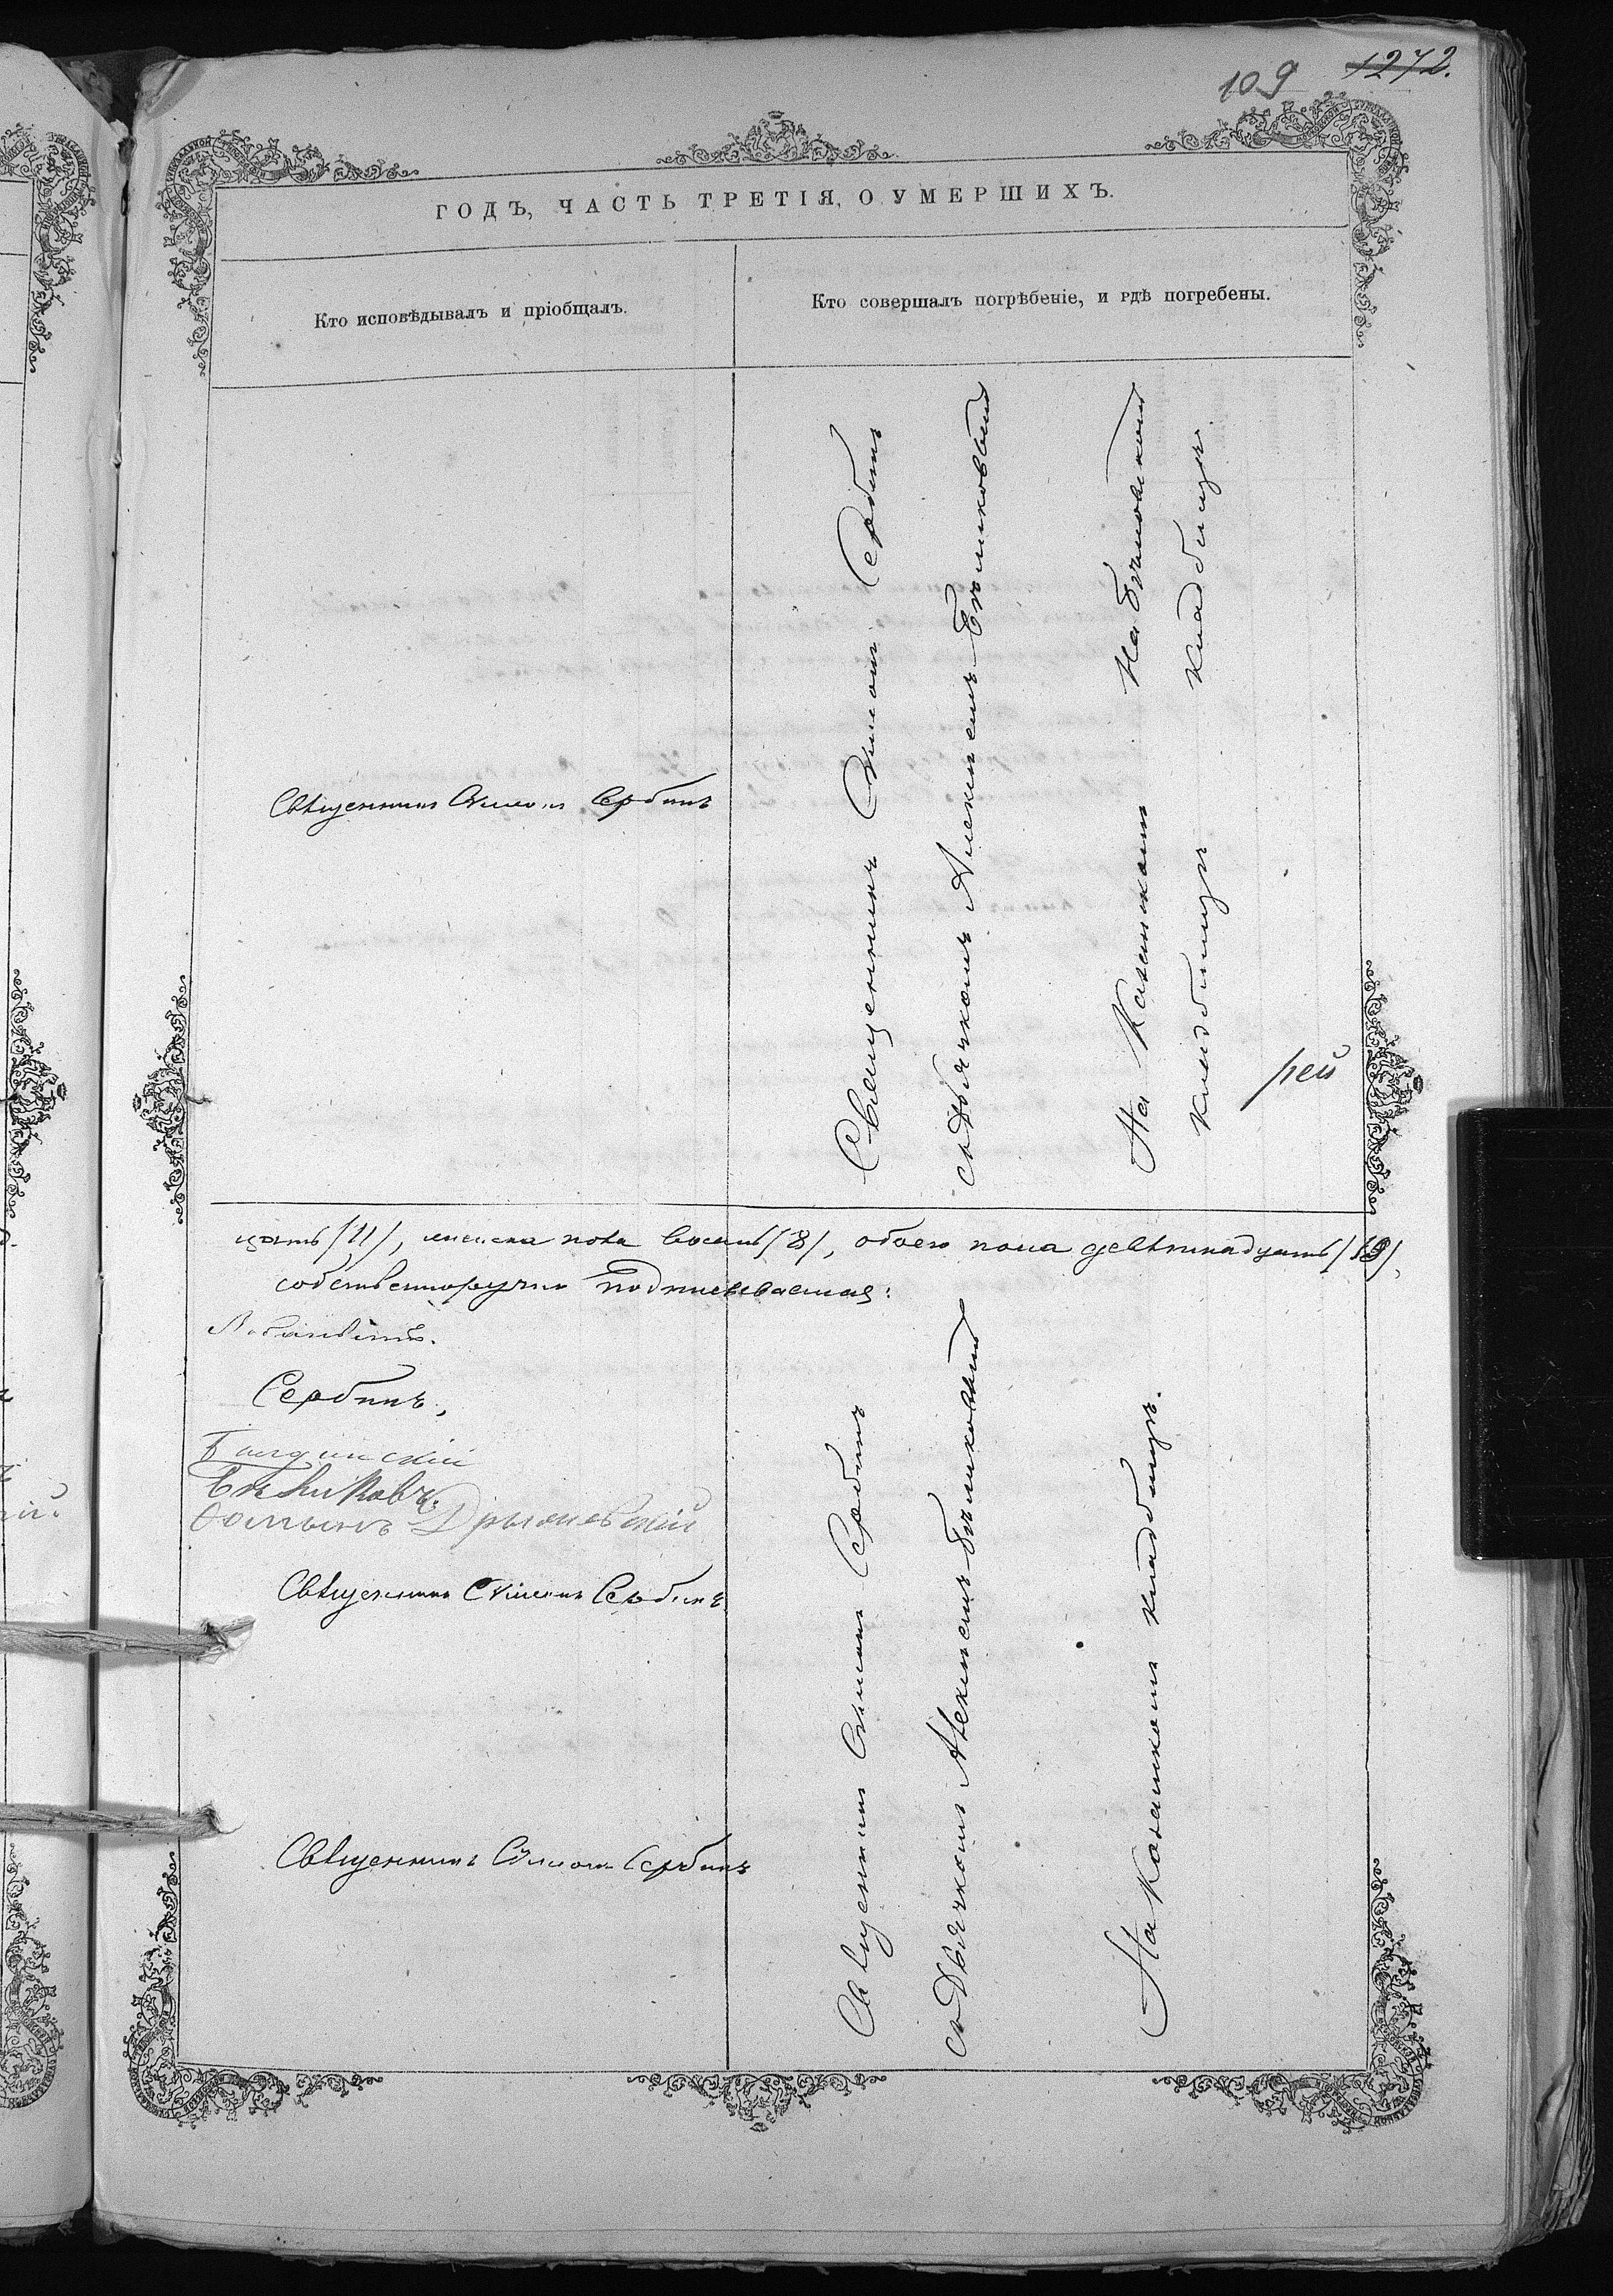 109 1272.
ГОДЪ, ЧАСТЬ ТРЕТІЯ, О УМЕРШИХЪ.
Кто исповѣдывалъ и пріобщалъ.
Кто совершалъ погрѣбеніе, и гдѣ погребены.
Священникъ Симеонъ Сербинъ
Священникъ Симеонъ Сербинъ
съ Дьячкомъ Алексѣемъ Бѣликовымъ
На
кладбищѣ.
На Казачкомъ
кладбищѣ
рей
цать /11/, женска пола восемь /8/, обоего пола девятнадцать /19/,
собственноручно подписываемся:
Сербинъ,
Бѣликовъ.
Священникъ Симеонъ Сербинъ
Священникъ Симеонъ Сербинъ
Священникъ Симеонъ Сербинъ
съ Дьячкомъ Алексѣемъ Бѣликовымъ
На Казачкомъ кладбищѣ.